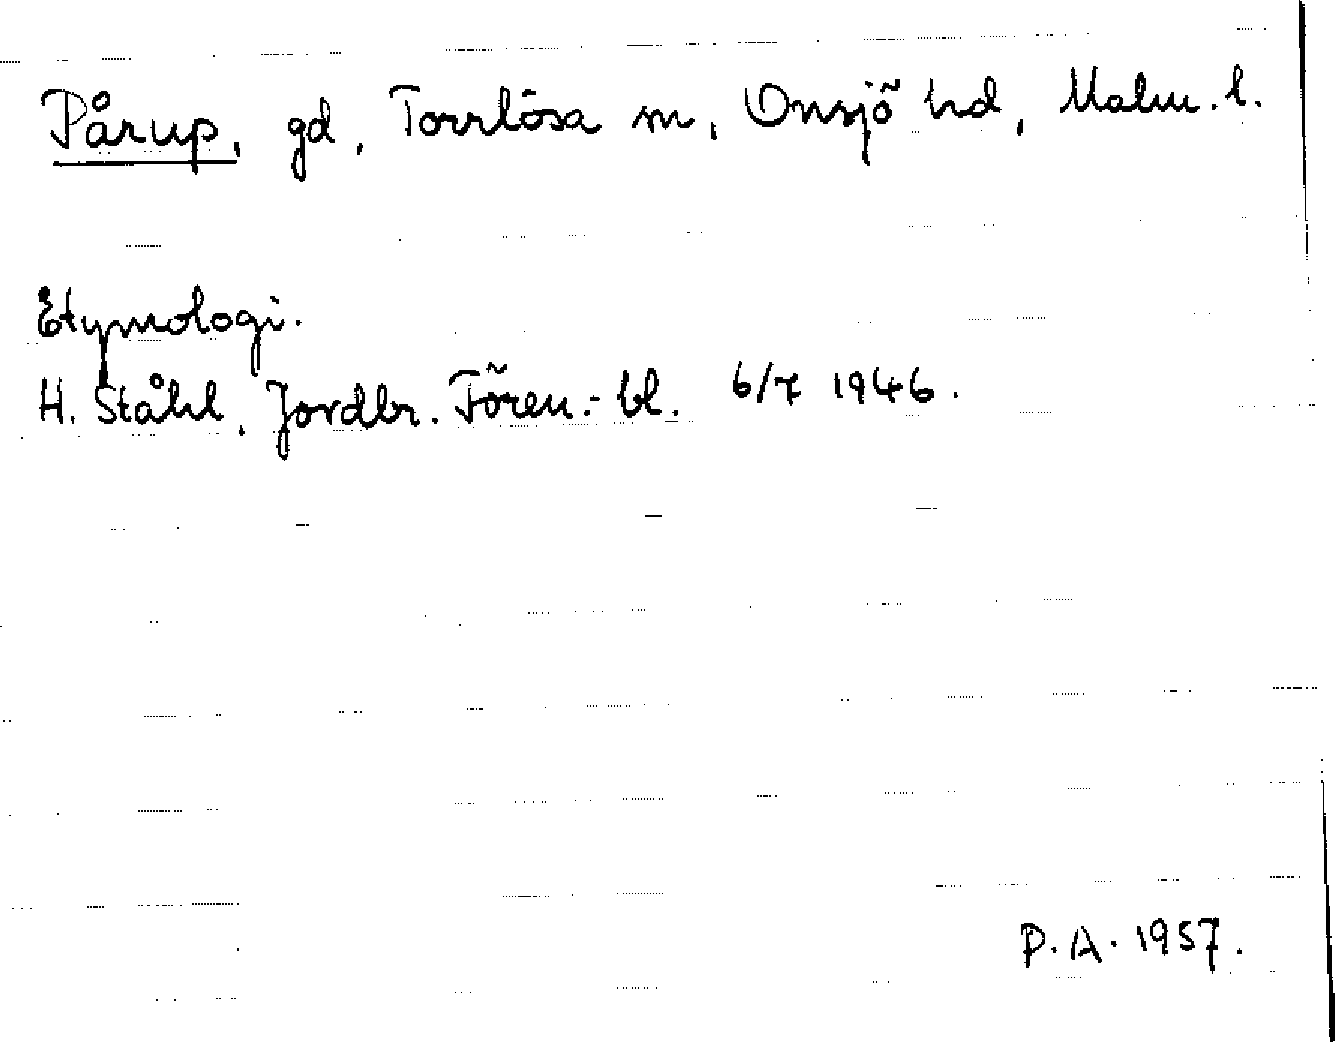 Pårup, gd, Torrlösa sn, Onsjö hd, Malm. l.
Etymologi.
H. Ståhl, Jordbr. Fören.-bl. 6/7 1946.
P.A. 1957.